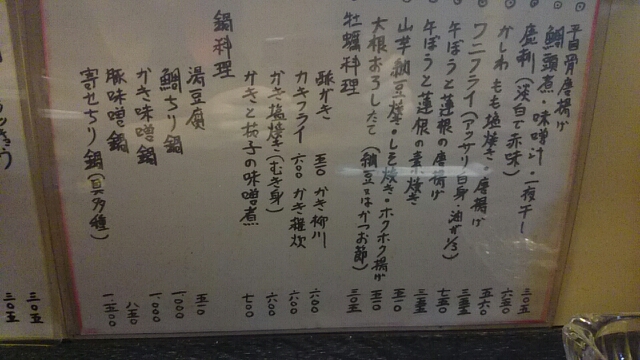 平目骨唐揚げ 三〇五
鯛頭煮・味噌汁・一夜干し 六五〇
鹿刺(淡白で赤味)
かしわもも塩焼き・唐揚げ 五六〇
ワニフライ(アッサリ白身・油が1/3)
午ぼうと蓮根の唐揚げ 七五〇
午ぼうと蓮根の素焼き
山芋納豆焼き・しそ焼き・ホクホク揚げ 五一〇
大根おろしたて(納豆又はかつお節) 三〇五
牡蠣料理
酢かき 五一〇 かき柳川 六〇〇
カキフライ 六〇〇 かき雑炊 六〇〇
かき塩焼き(むき身) 六〇〇
かきと茄子の味噌煮 七〇〇
鍋料理
湯豆腐 五一〇
鯛ちり鍋 一〇〇〇
かき味噌鍋 一、〇〇〇
豚味噌鍋 八五〇
寄せちり鍋(具多種) 一、五〇〇
三〇五
三〇五